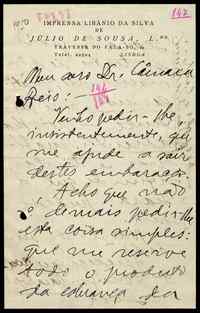 142
IMPRENSA LIBÂNIO DA SILVA
DE
JULIO DE SOUSA, L.DA
TRAVESSA DO FALA-SÓ,
LISBOA
Meu caro Dr. Câmara
Reis: —
Venho pedir-lhe,
insistentemente, que
me ajude a sair
destes embaraços.
Acho que não
é demais pedir-lhe
esta coisa simples:
que me reserve
todo o produto
da cobrança da